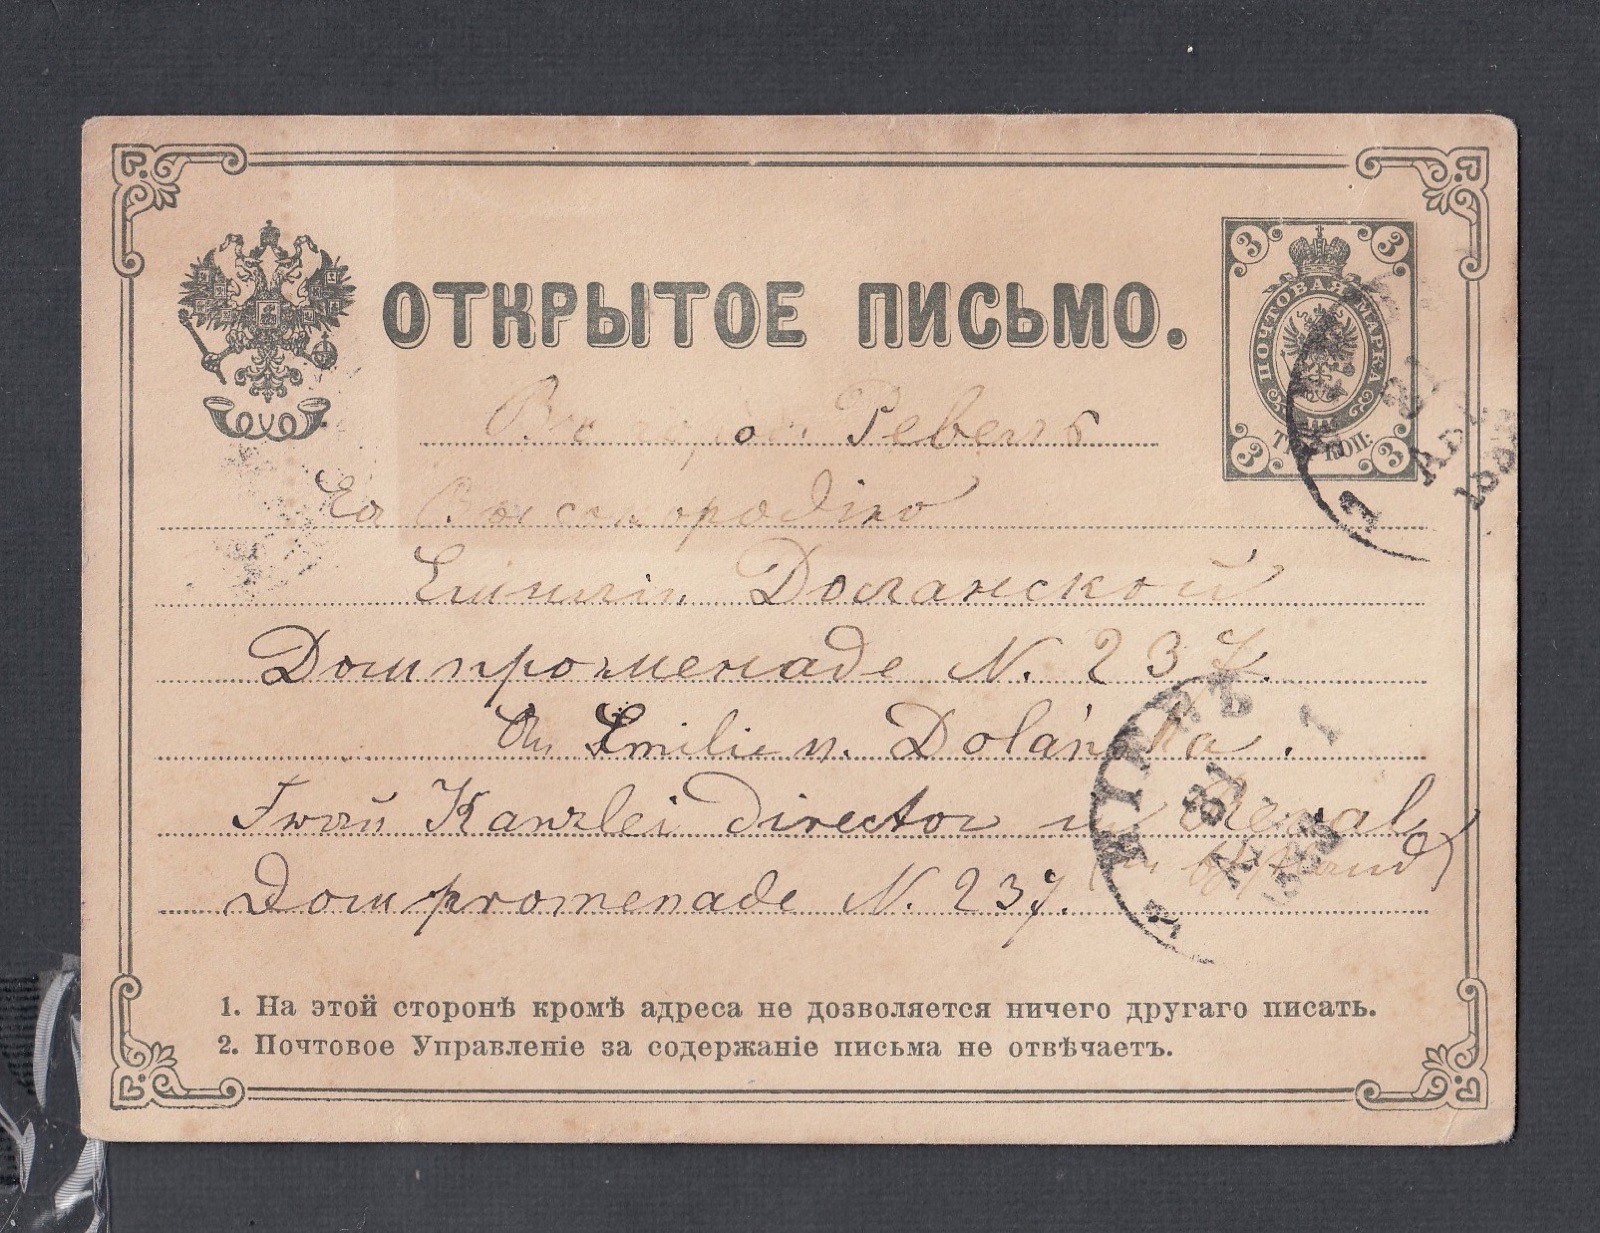 ОТКРЫТОЕ ПИСЬМО.
3 3
ПОЧТОВАЯ МАРКА
КОП:
3 3
Ревель
Ея Высокородію
Емиліи Доланской
Домпроменаде N. 237.
An Emilie v. Dolánska.
Frau Kanzlei director in Reval
Dompromenade N. 237.
1. На этой сторонѣ кромѣ адреса не дозволяется ничего другаго писать.
2. Почтовое Управленіе за содержаніе письма не отвѣчаетъ.